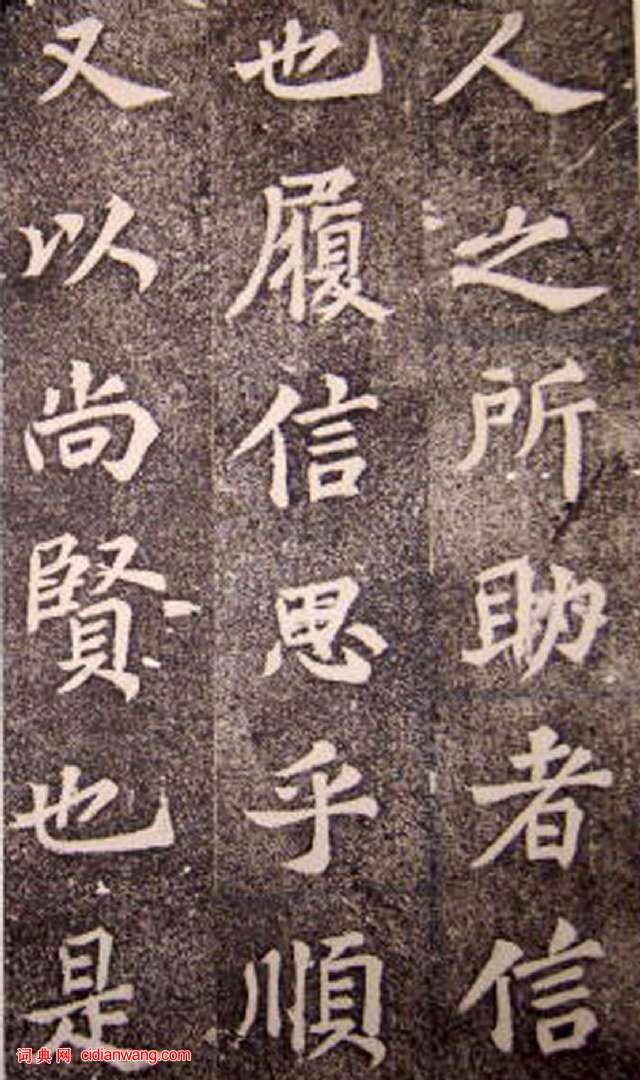 人之所助者信
也履信思乎順
又以尚賢也是
词典网 cidianwang.com